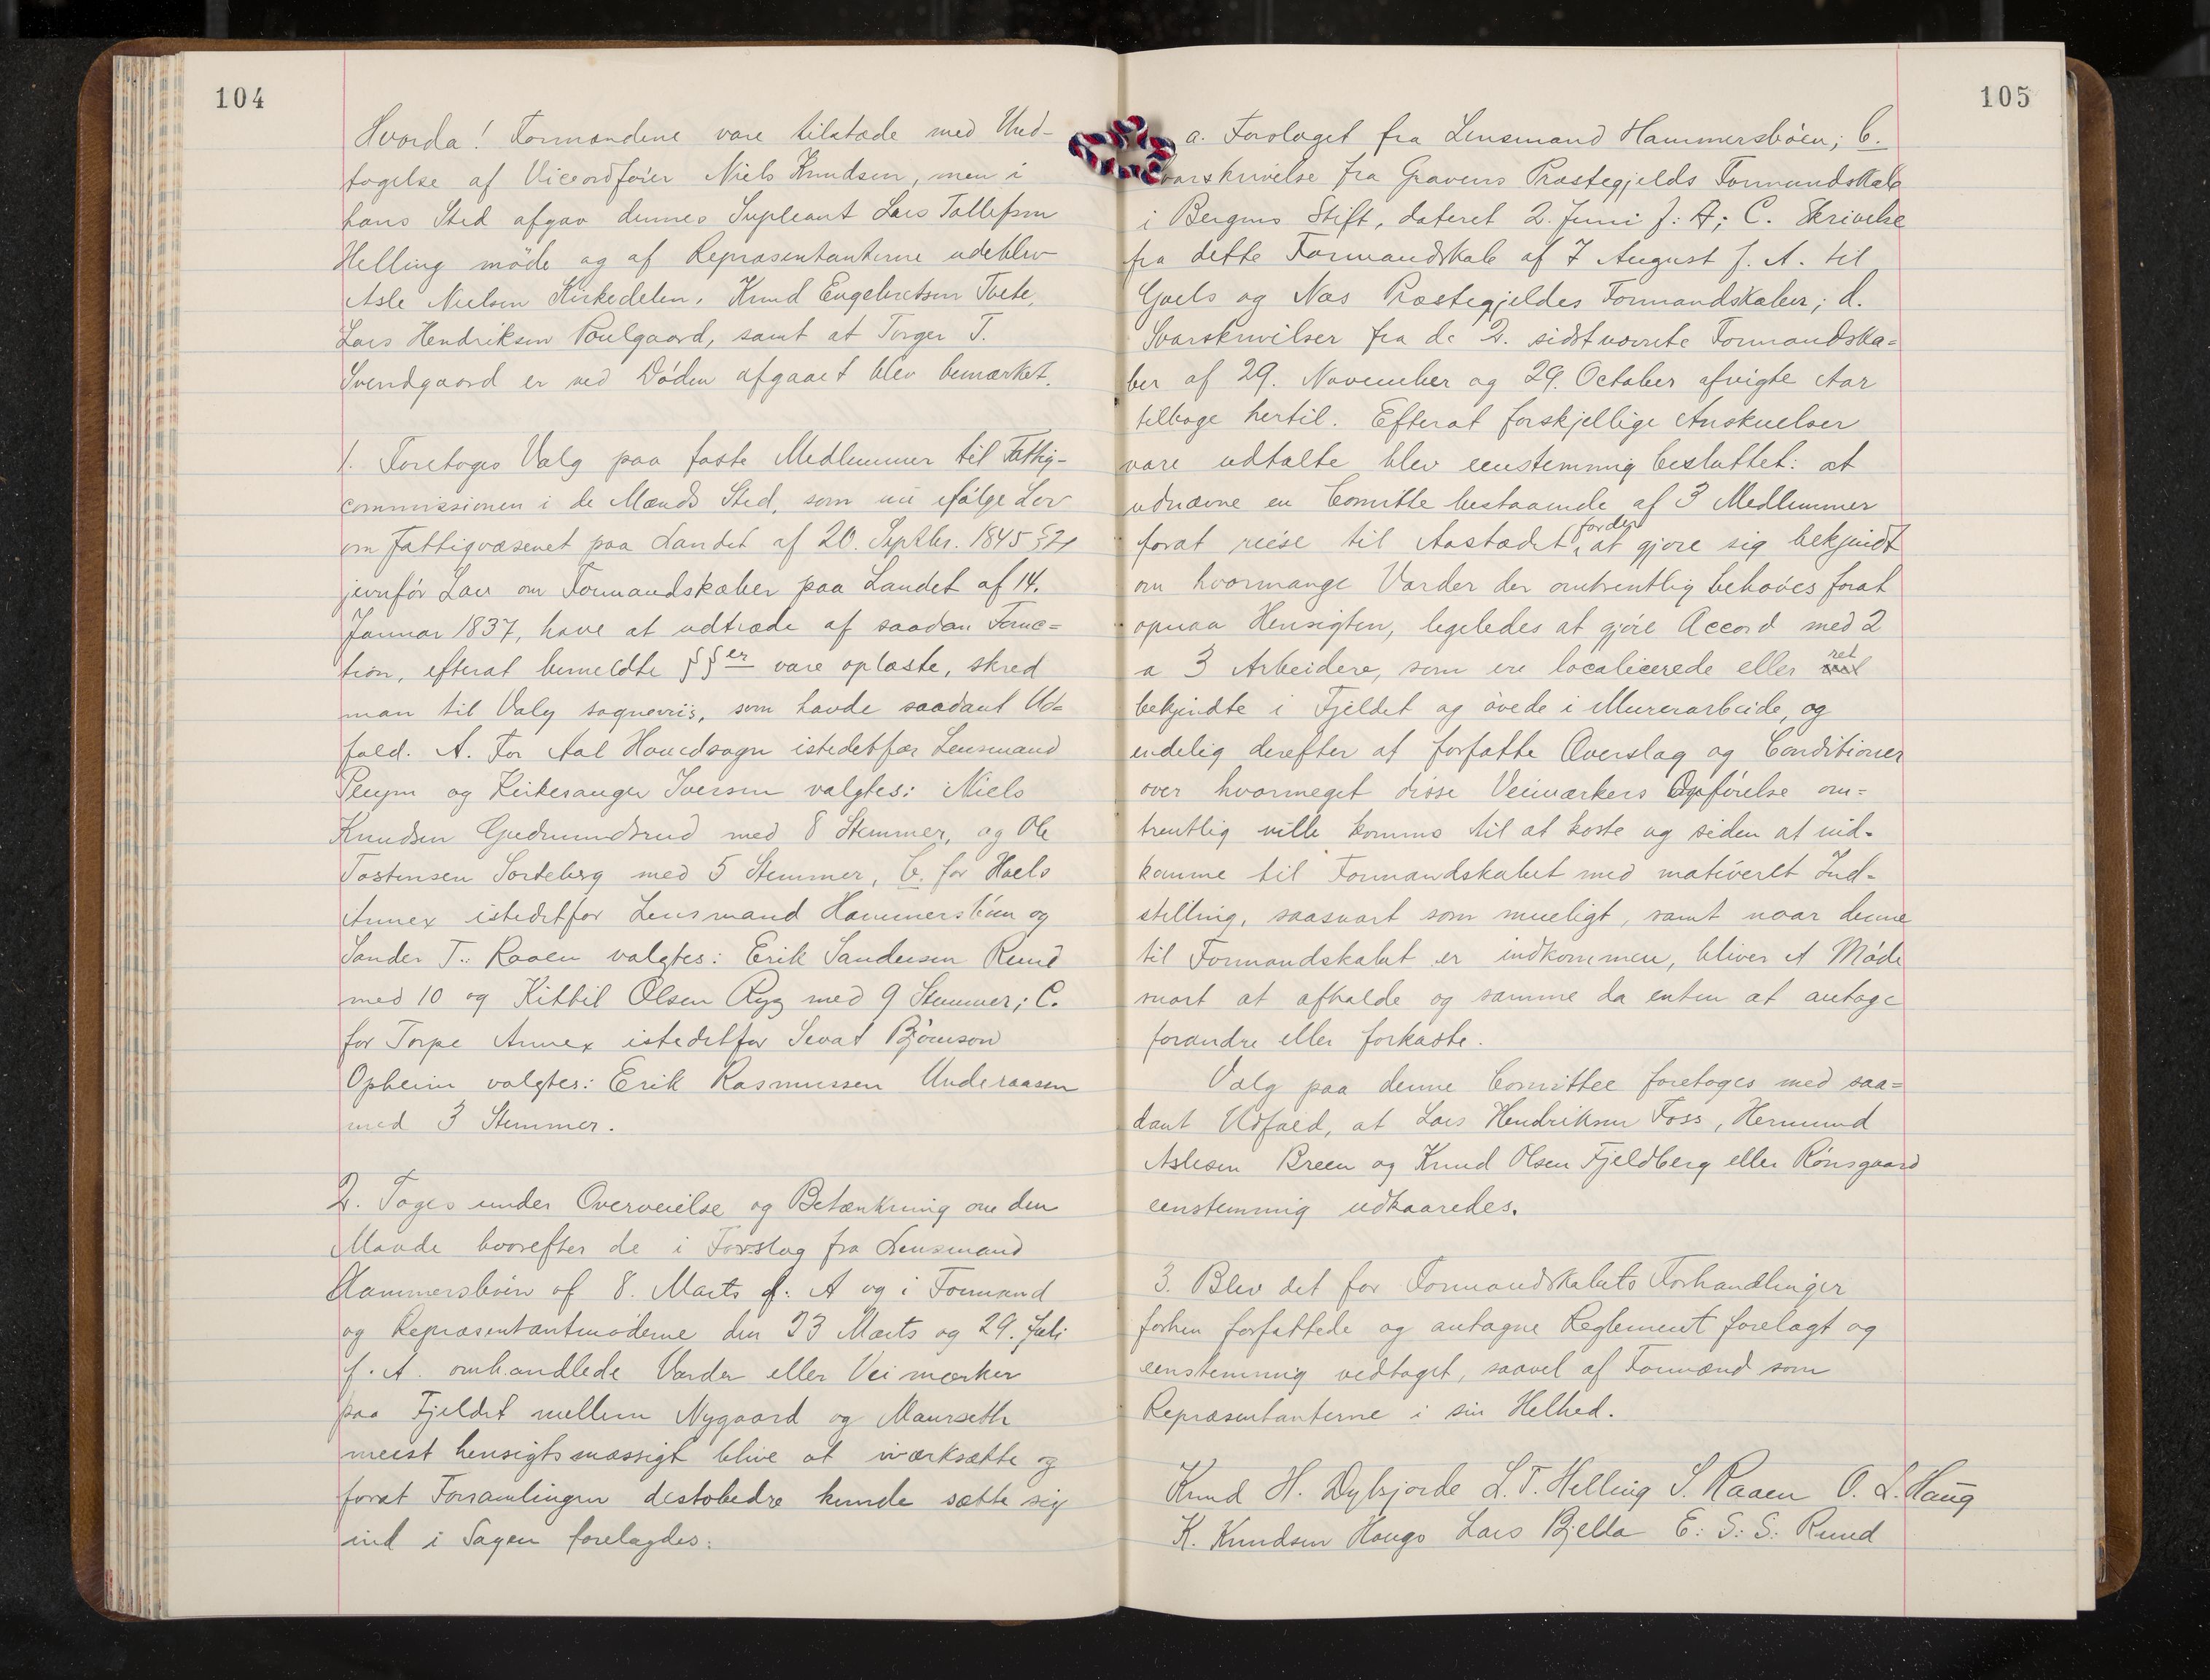 104
Hvorda! Formændene vare tilstæde med Und-
tagelse af Viceordfører Niels Knudsen, men i
hans Sted afgav dennes Supleant Lars Tollefsen
Helling møde og af Repræsentanterne udeblev
Asle Nielsen Kirkedelen, Knud Engebretsen Tvete,
Lars Hendriksen Poulgaard, samt at Torger T.
Svendgaard er ved Døden afgaaet blev bemærket.
1. Foretoges Valg paa faste Medlemmer til Fattig-
commissionen i de Mænds Sted, som nu ifølge Lov
om Fattigvæsenet paa Landet af 20. Septbr. 1845 §
jevnfør Lov om Formandskaber paa Landet af 14.
Januar 1837, have at udtræde af saadan Func=
tion, efterat bemeldte §§er vare oplæste, skred
man til Valg sogneviis, som havde saadant Ud=
fald. A. For Aal Hovedsogn istedetfor Lensmand
Pleym og Kirkesanger Iversen valgtes: Niels
Knudsen Gudmundsrud med 8 Stemmer, og Ole
Tostensen Sordeberg med 5 Stemmer, b. for Hols
Annex istedetfor Lensmand Hammersbøen og
Sander T. Raaen valgtes: Erik Sandersen Rund
med 10 og Kittil Olsen Ryg med 9 Stemmer; C.
for Torpe Annex istedetfor Sevat Bjørnson
Opheim valgtes: Erik Rasmussen Underaasen
med 3 Stemmer.
2. Toges under Overveielse og Betænkning om den
Maade hvorefter de i Forslag fra Lensmand
Hammersbøen af 8. Marts f. A og i Formand
og Repræsentantmøderne den 23 Marts og 29. Juli
f. A. omhandlede Varder eller Veimærker
paa Fjeldet mellem Nygaard og Maurseth
meest hensigtsmæssigt blive at iværksætte og
forat Forsamlingen destobedre kunde sætte sig
ind i Sagen forelagdes:
105
a. Forslaget fra Lensmand Hammersbøen; b.
Svarskrivelse fra Gravens Præstegjelds Formandskab
i Bergens Stift, dateret 2. Juni f. A; C. Skrivelse
fra dette Formandskab af 7 August f. A. til
Goels og Næs Præstegjeldes Formandskaber; d.
Svarskrivelser fra de 2. sidstnævnte Formandska=
ber af 29. November og 29. October afvigte Aar
tilbage hertil. Efterat forskjellige Anskuelser
vare udtalte blev eenstemmig besluttet: at
udnævne en Comitte bestaaende af 3 Medlemmer
forat reise til Aastædet, forder at gjøre sig bekjendt
om hvormange Varder der omtrentlig behøves forat
opnaa Hensigten, ligeledes at gjøre Accord med 2
a 3 Arbeidere, som ere localicerede eller ret
bekjendte i Fjeldet og øvede i Murerarbeide, og
endelig derefter at forfatte Overslag og Conditioner
over hvormeget disse Veimærkers Opførelse om=
trentlig ville komme til at koste og siden at ind-
komme til Formandskabet med motiveret Ind-
stilling, saasnart som mueligt, samt naar denne
til Formandskabet er indkommen, bliver et Møde
snart at afholde og samme da enten at antage
forandre eller forkaste.
Valg paa denne Comittee foretoges med saa=
dant Udfald, at Lars Hendriksen Foss, Hermund
Aslesen Breen og Knud Olsen Fjeldberg eller Rønsgaard
eenstemmig udkaaredes.
3. Blev det for Formandskabets Forhandlinger
forhen forfattede og antagne Reglement forelagt og
eenstemmig vedtaget, saavel af Formænd som
Repræsentanterne i sin Helhed.
Knud H. Dybsjorde L. T. Helling S. Raaen O. L. Haug
K. Knudsen Hougo Lars Bjella E: S: S: Rund